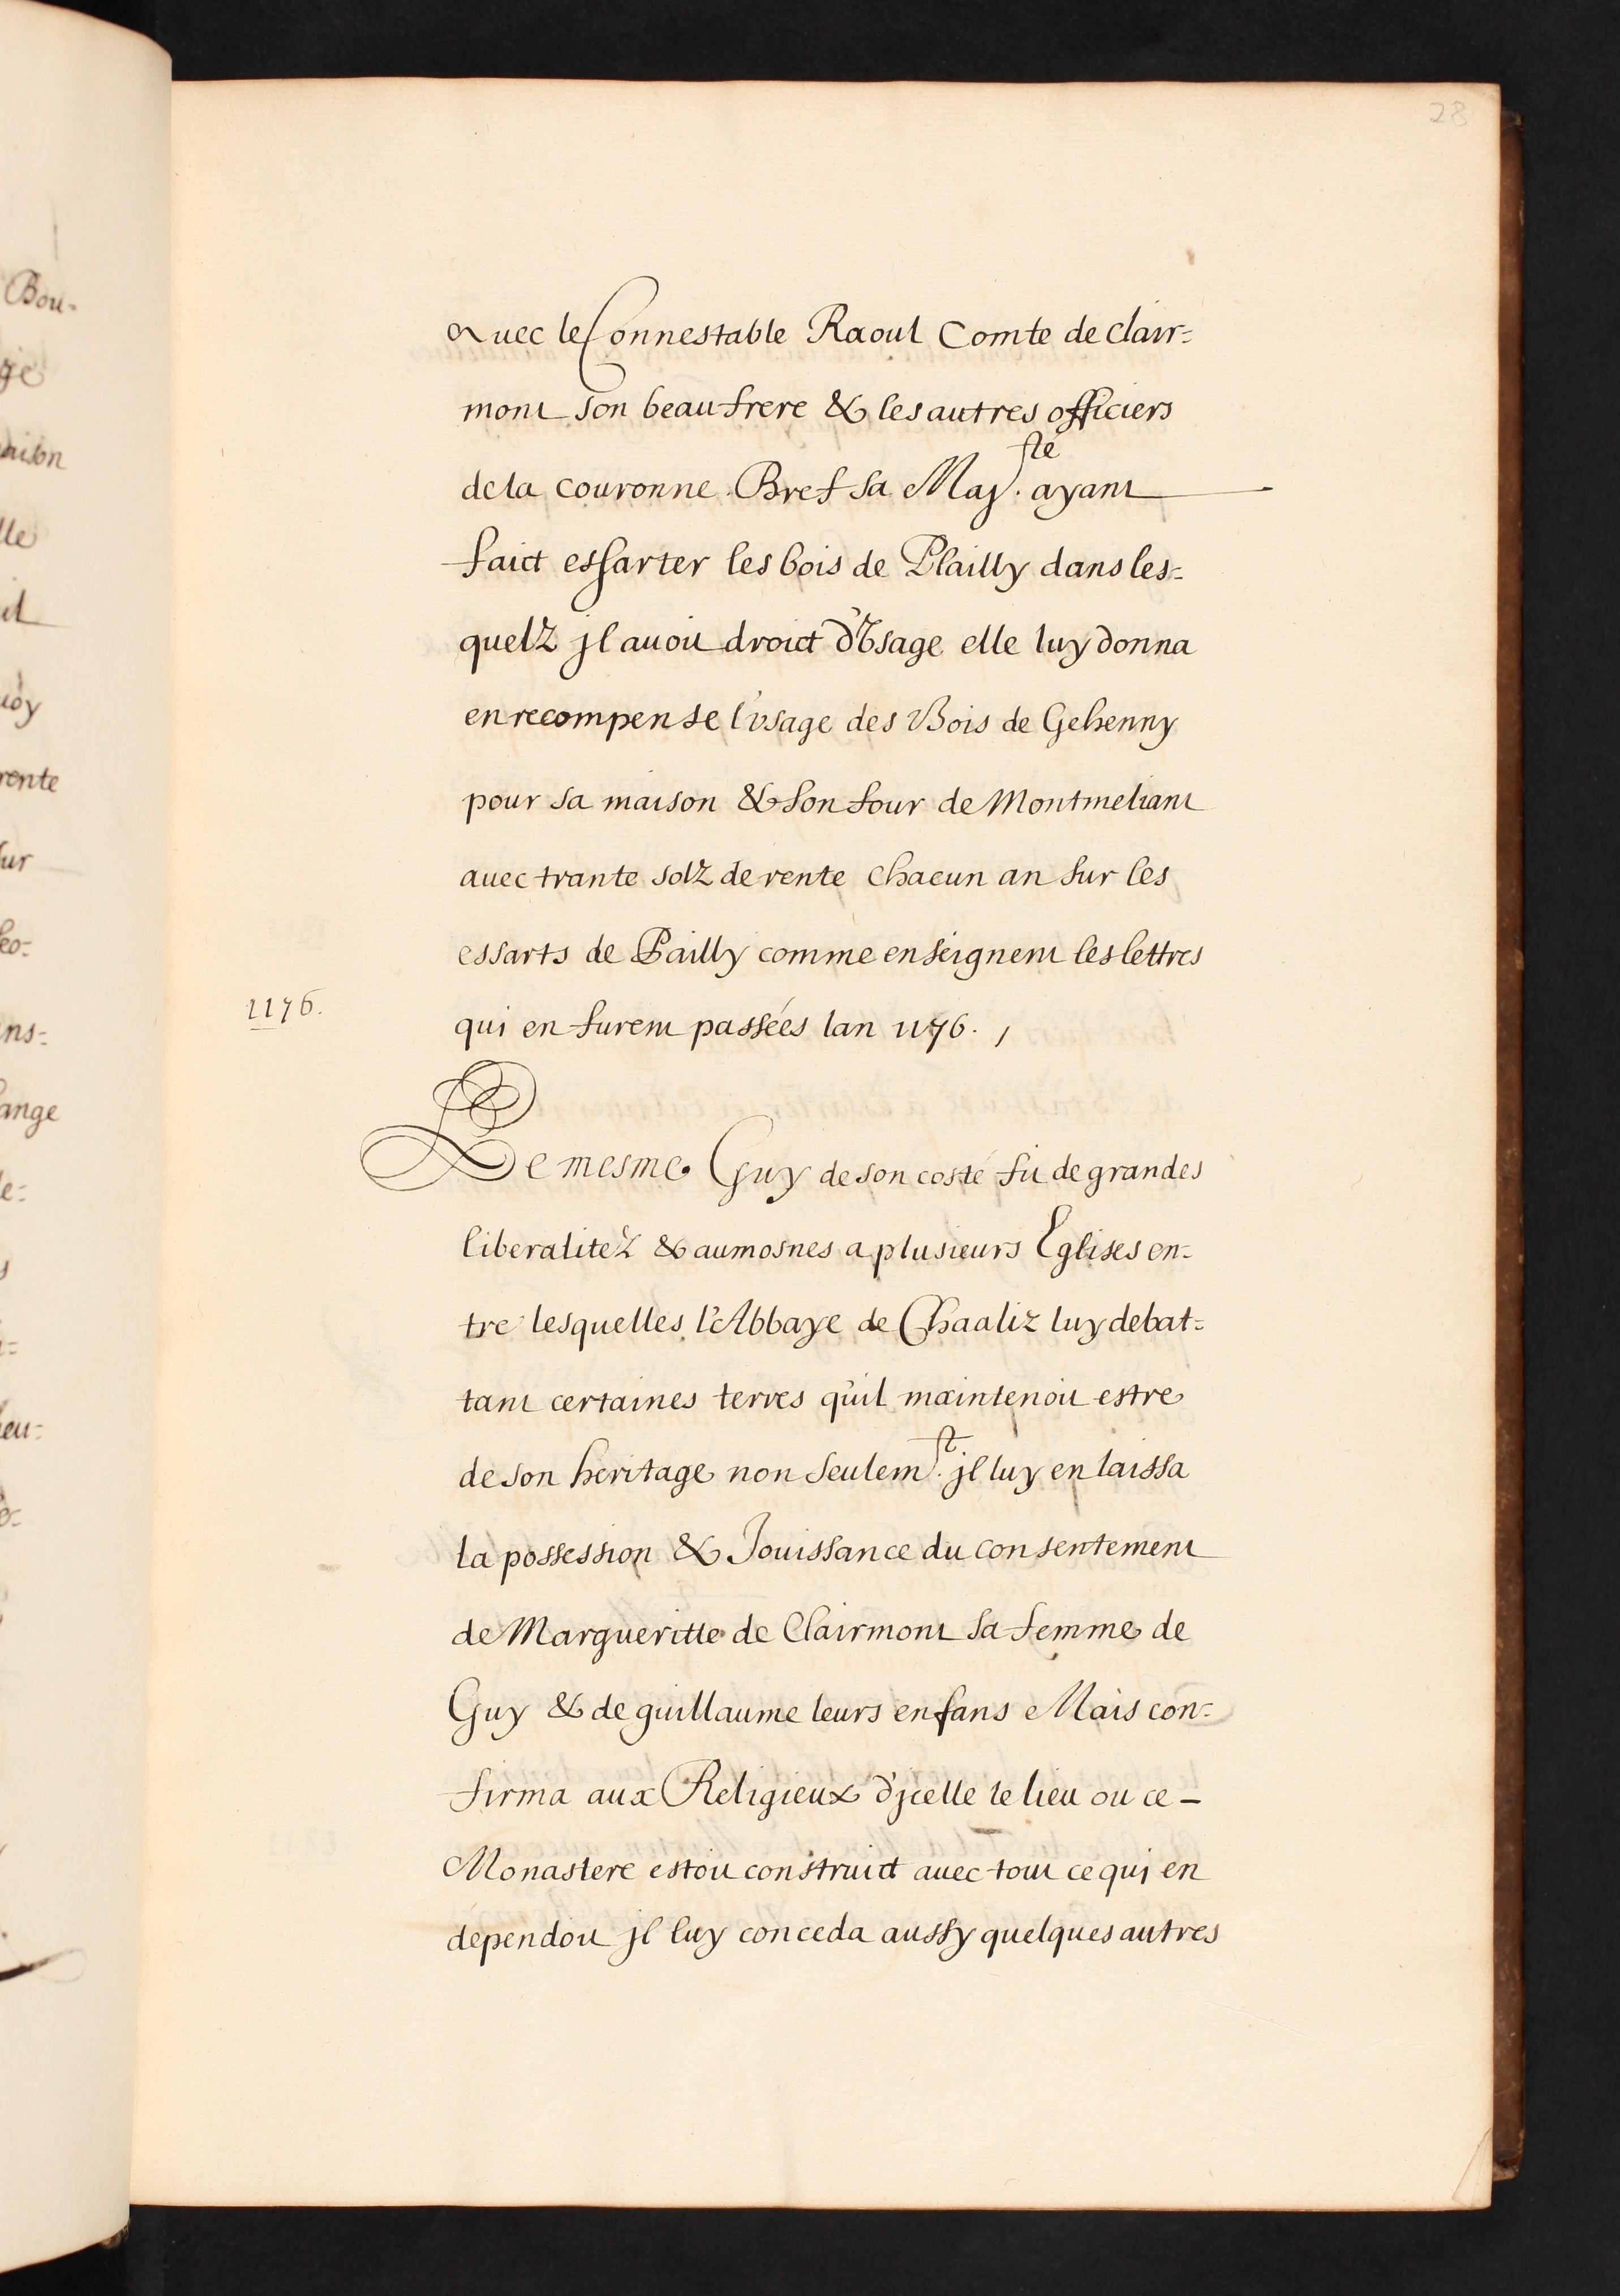 28
auec le Connestable Raoul Comte de clair-
mont son beau frere & les autres officiers
de la couronne. Bref sa Maj.sté ayant
faict essarter les bois de Plailly dans les-
quelz jl auoit droict d'Vsage elle luy donna
en recompense l'vsage des Bois de Gehenny
pour sa maison & son four de Montmeliant
auec trante solz de rente chacun an sur les
essarts de Pailly comme enseignent les lettres
1176.
qui en furent passées lan 1176.
Le mesme Guy de son costé fit de grandes
liberalitez & aumosnes a plusieurs Eglises en-
tre lesquelles l'Abbaye de Chaaliz luy debat-
tant certaines terres qu'il maintenoit estre
de son heritage non seulem.t jl luy en laissa
la possession & Jouissance du consentement
de Margueritte de Clairmont sa femme de
Guy & de guillaume leurs enfans Mais con-
firma aux Religieux d'jcelle le lieu ou ce -
Monastere estoit construict auec tout ce qui en
dependoit jl luy conceda aussy quelques autres
Bou-
ge
aison
lle
il
uoy
rente
sur
ns-
ange
le-
eu-